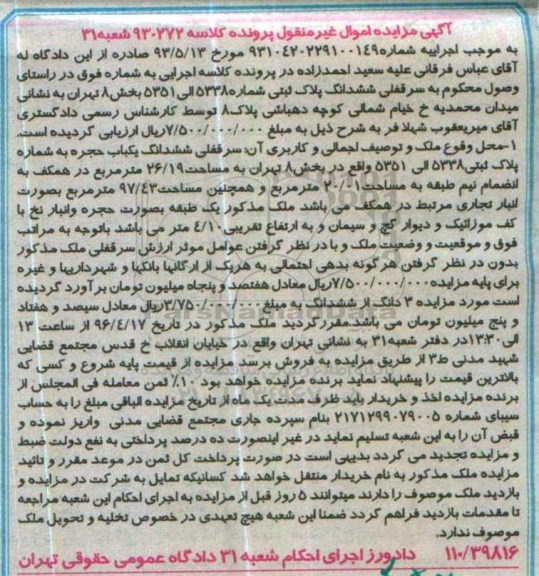 آگهی مزایده اموال غیرمنقول پرونده کلاسه ۹۳۰۲۷۲ شعبه۳۱
به موجب اجراییه شماره۹۳۱۰۴۲۰۲۲۹۱۰۰۱۴۹ مورخ ۹۳/۵/۱۳ صادره از این دادگاه له
آقای عباس فرقانی علیه سعید احمدزاده در پرونده کلاسه اجرایی به شماره فوق در راستای
وصول محکوم به سرقفلی ششدانگ پلاک ثبتی شماره۵۳۳۸ الی۵۳۵۱ بخش۸ تهران به نشانی
میدان محمدیه خ خیام شمالی کوچه دهباشی پلاک۸ توسط کارشناس رسمی دادگستری
آقای میریعقوب شهلافر به شرح ذیل به مبلغ ۷/۵۰۰/۰۰۰/۰۰۰ریال ارزیابی گردیده است.
۱-محل وقوع ملک و توصیف اجمالی و کاربری آن: سرقفلی ششدانگ یکباب حجره به شماره
پلاک ثبتی۵۳۳۸ الی ۵۳۵۱ واقع در بخش۸ تهران به مساحت۲۶/۱۹ مترمربع در همکف به
انضمام نیم طبقه به مساحت۲۰/۰۱ مترمربع و همچنین مساحت۹۷/۴۳ مترمربع بصورت
انبار تجاری مرتبط در همکف می باشد ملک مذکور یک طبقه بصورت حجره وانبار نخ با
کف موزائیک و دیوار گچ و سیمان و به ارتفاع تقریبی۴/۱۰ متر می باشد باتوجه به مراتب
فوق و موقعیت و وضعیت ملک و با در نظر گرفتن عوامل موثر ارزش سرقفلی ملک مذکور
بدون در نظر گرفتن هرگونه بدهی احتمالی به هریک از ارگانها بانکها و شهرداریها و غیره
برای پایه مزایده۷/۵۰۰/۰۰۰/۰۰۰ریال معادل هفتصد و پنجاه میلیون تومان برآورد گردیده
است مورد مزایده ۳ دانگ از ششدانگ به مبلغ ۳/۷۵۰/۰۰۰/۰۰۰ریال معادل سیصد و هفتاد
و پنج میلیون تومان می باشد.مقررگردید ملک مذکور در تاریخ ۹۶/۴/۱۷ از ساعت ۱۳
الی۱۳:۳۰در دفتر شعبه۳۱ به نشانی تهران واقع در خیابان انقلاب خ قدس مجتمع قضایی
شهید مدنی ط۳ از طریق مزایده به فروش برسد مزایده از قیمت پایه شروع و کسی که
بالاترین قیمت را پیشنهاد نماید برنده مزایده خواهد بود ۱۰٪ ثمن معامله فی المجلس از
برنده مزایده اخذ و خریدار باید ظرف مدت یک ماه از تاریخ مزایده الباقی مبلغ را به حساب
سیبای شماره ۲۱۷۱۲۹۹۰۷۹۰۰۵ بنام سپرده جاری مجتمع قضایی مدنی واریز نموده و
قبض آن را به این شعبه تسلیم نماید در غیر اینصورت ده درصد پرداختی به نفع دولت ضبط
و مزایده تجدید می گردد بدیهی است در صورت پرداخت کل ثمن در موعد مقرر و تائید
مزایده ملک مذکور به نام خریدار منتقل خواهد شد کسانیکه تمایل به شرکت در مزایده و
بازدید ملک موصوف را دارند میتوانند ۵ روز قبل از مزایده به اجرای احکام این شعبه مراجعه
تا مقدمات بازدید فراهم گردد ضمنا این شعبه هیچ تعهدی در خصوص تخلیه و تحویل ملک
موصوف ندارد.
۱۱۰/۳۹۸۱۶ دادورز اجرای احکام شعبه ۳۱ دادگاه عمومی حقوقی تهران